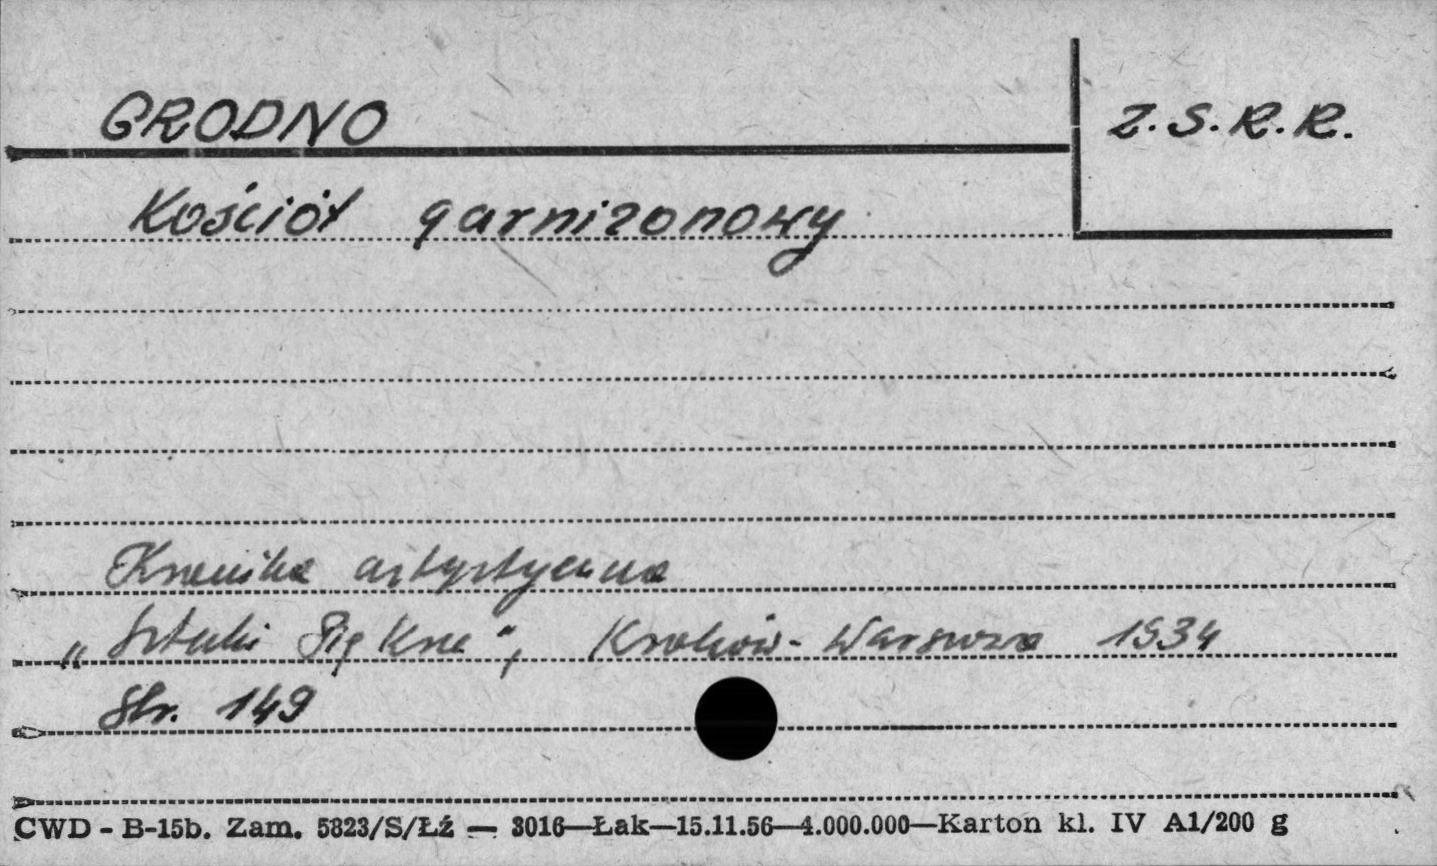 GRODNO
Z.S.R.R.
Kościół garnizonowy
Kronika artystyczna
„Sztuki Piękne", Kraków-Warszawa 1934
Str. 149
CWD - B-15b. Zam. 5823/S/Łź — 3016—Łak—15.11.56—4.000.000—Karton kl. IV A1/200 g